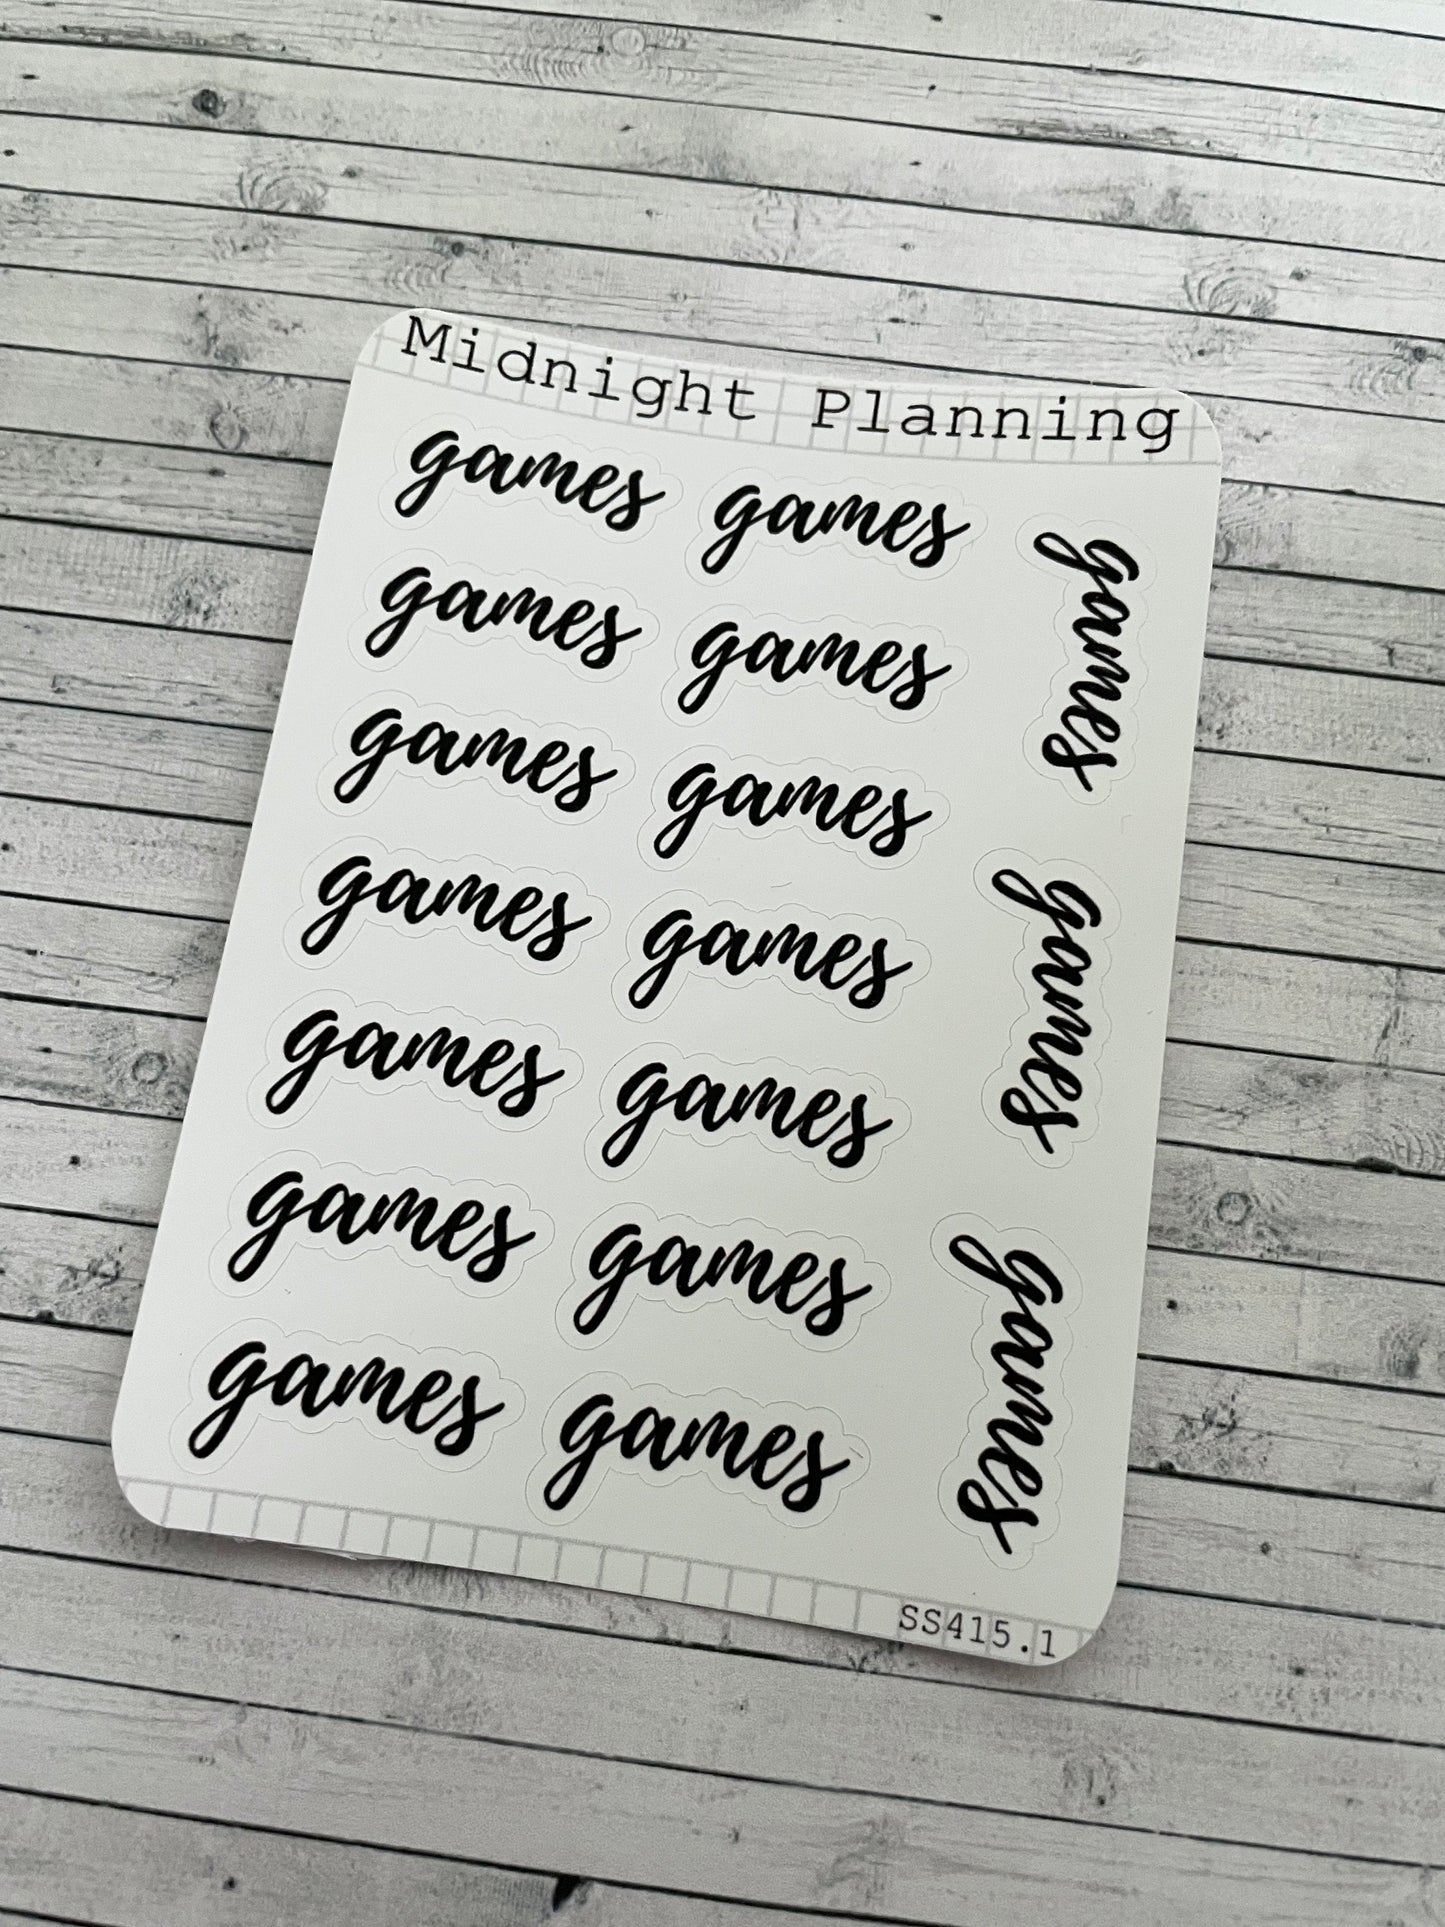 Midnight Planning
games games games
games games
games games
games games games
games games
games games games
games games
SS415.1